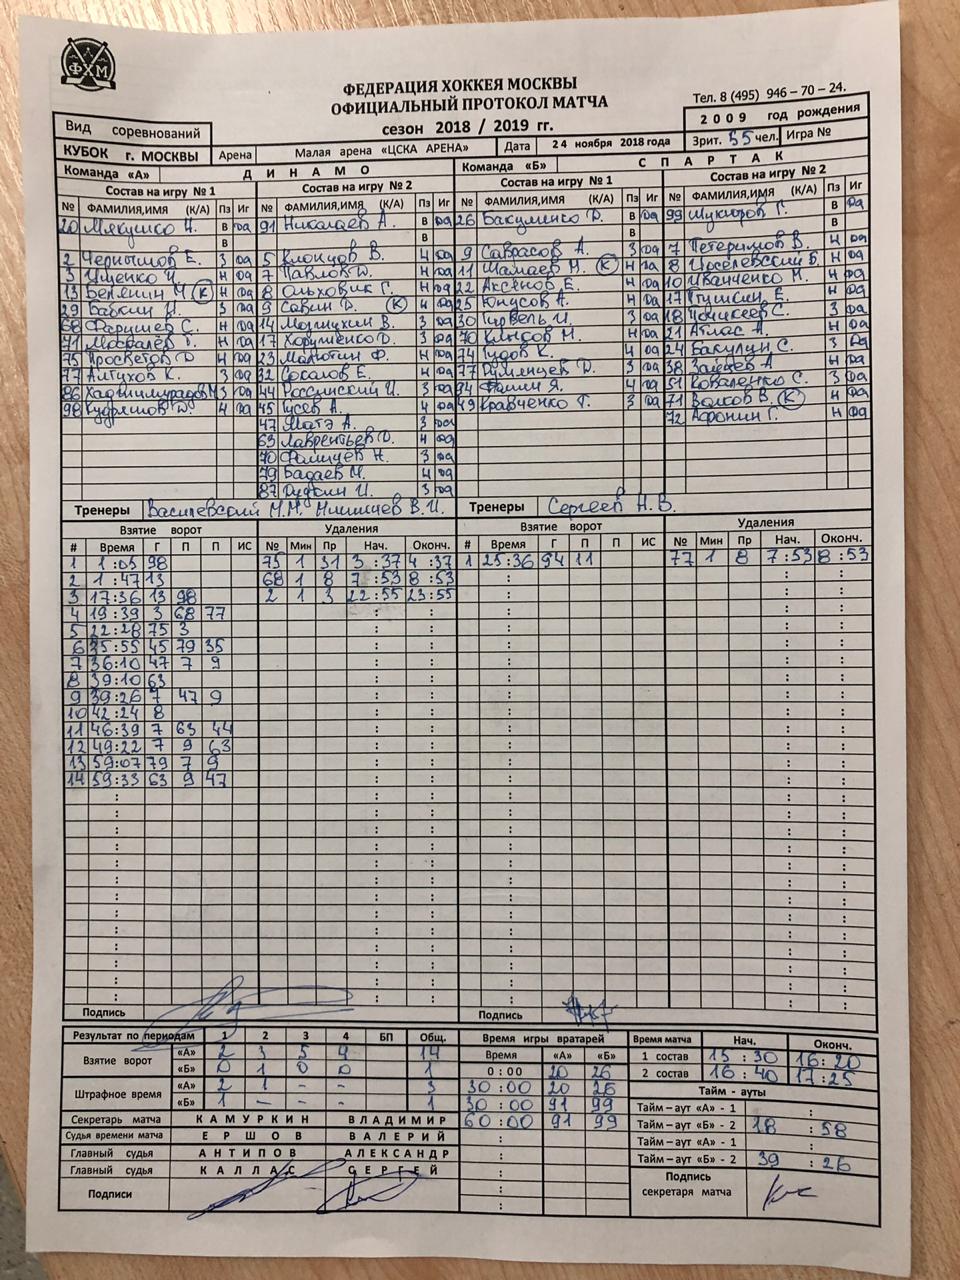 ФХМ
ФЕДЕРАЦИЯ ХОККЕЯ МОСКВЫ
ОФИЦИАЛЬНЫЙ ПРОТОКОЛ МАТЧА
сезон 2018 / 2019 гг.
Тел. 8 (495) 946 – 70 – 24.
Вид соревнований
2009 год рождения
КУБОК г. МОСКВЫ Арена Малая арена «ЦСКА АРЕНА» Дата 24 ноября 2018 года Зрит. 55 чел. Игра №
Команда «А» ДИНАМО Команда «Б» СПАРТАК
Состав на игру № 1 Состав на игру № 2 Состав на игру № 1 Состав на игру № 2
№ ФАМИЛИЯ,ИМЯ (К/А) Пз Иг № ФАМИЛИЯ,ИМЯ (К/А) Пз Иг № ФАМИЛИЯ,ИМЯ (К/А) Пз Иг № ФАМИЛИЯ,ИМЯ (К/А) Пз Иг
20 Мякушко В да 91 Николаев А. В да 26 Бакуменко Р. В да 99 Г. В да
В В В В
2 Чернышов Е. З да 5 В. да 9 Саврасов А. З да 7 В. Н да
3 Ищенко Н да 7 Павлов Н да 11 Шамаев М. (К) Н да 8 Б. Н да
13 Белянин (К) Н да 8 Ольховик Г. Н да 22 Аксенов Е. Н да 10 Иванченко М. Н да
29 Бабкин З да 9 Савин D. (К) да 25 Юнусов А. Н да 17 Е. Н да
68 С. Н да 14 В. З да 30 И. З да 18 С. З да
71 Москалев Г. Н да 17 Хорушенко D. З да 70 М. Н да 21 Атлас А. Н да
75 Просветов D Н да 23 Малютин Ф. Н да 74 Гудов К. да 24 Бакулин С. З да
77 Алтухов К. З да 32 Соколов Е. Н да 77 Румянцев D. З да 38 Зайцев А Н да
86 З да 44 Россинский И. З да 94 Фомин Я. да 51 Коваленко С. З да
98 Кудряшов D. да 45 Гусев А. да 49 Кравченко Г. З да 71 Волков В. (К) Н да
47 Матэ А. З да 72 Афонин Г. Н да
63 Лаврентьев D. да
70 Н. З да
79 Бадаев М. да
87 Рудкин И. З да
Тренеры Василевский М.М. В.И. Тренеры Сергеев Н.В.
Взятие ворот Удаления Взятие ворот Удаления
# Время Г П П ИС № Мин Пр Нач. Оконч. # Время Г П П ИС № Мин Пр Нач. Оконч.
1 1:05 98 75 1 31 3:37 4:37 1 25:36 94 11 77 1 8 7:53 8:53
2 1:47 13 68 1 8 7:53 8:53
3 17:36 13 98 2 1 3 22:55 23:55
4 19:39 3 68 77
5 22:28 75 3
6 35:55 45 79 35
7 36:10 47 7 9
8 39:10 63
9 39:26 7 47 9
10 42:24 8
11 46:39 7 63 44
12 49:22 7 9 63
13 59:07 79 7 9
14 59:33 63 9 47
Подпись Подпись
Результат по периодам 1 2 3 4 БП Общ. Время игры вратарей Время матча Нач. Оконч.
Взятие ворот «А» 2 3 5 4 14 Время «А» «Б» 1 состав 15:30 16:20
«Б» 0 1 0 0 1 0:00 20 26 2 состав 16:40 17:25
Штрафное время «А» 2 1 - - 3 30:00 20 26 Тайм - ауты
«Б» 1 - - - 1 30:00 91 99 Тайм–аут «А» - 1 :
Секретарь матча КАМУРКИН ВЛАДИМИР 60:00 91 99 Тайм–аут «Б» - 2 18:58
Судья времени матча ЕРШОВ ВАЛЕРИЙ Тайм–аут «А» - 1 :
Главный судья АНТИПОВ АЛЕКСАНДР Тайм–аут «Б» - 2 39:26
Главный судья КАЛЛАС СЕРГЕЙ
Подписи Подпись секретаря матча